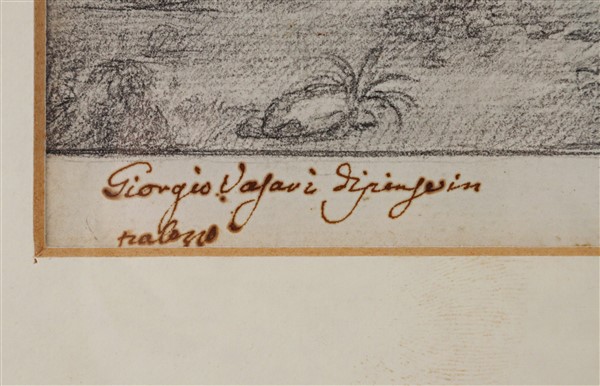 Giorgio Vasari dipinse in